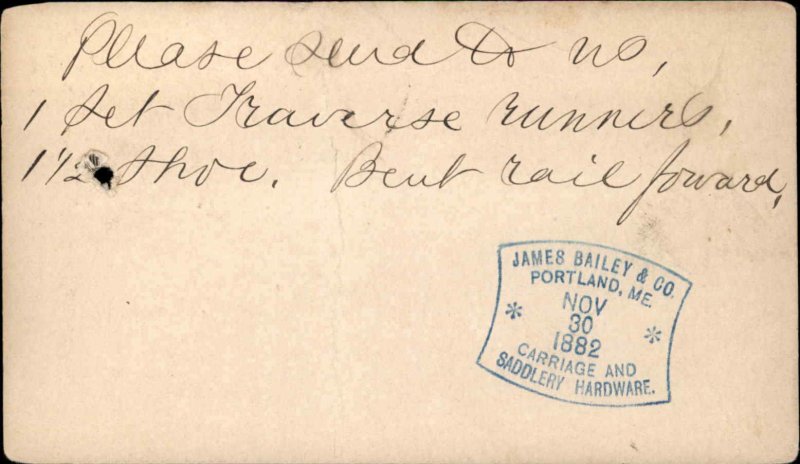 Please send to us,
1 set Traverse runners,
1 1/2 shoe. Bent rail foward,
JAMES BAILEY & CO.
PORTLAND, ME.
NOV
* 30 *
1882
CARRIAGE AND
SADDLERY HARDWARE.